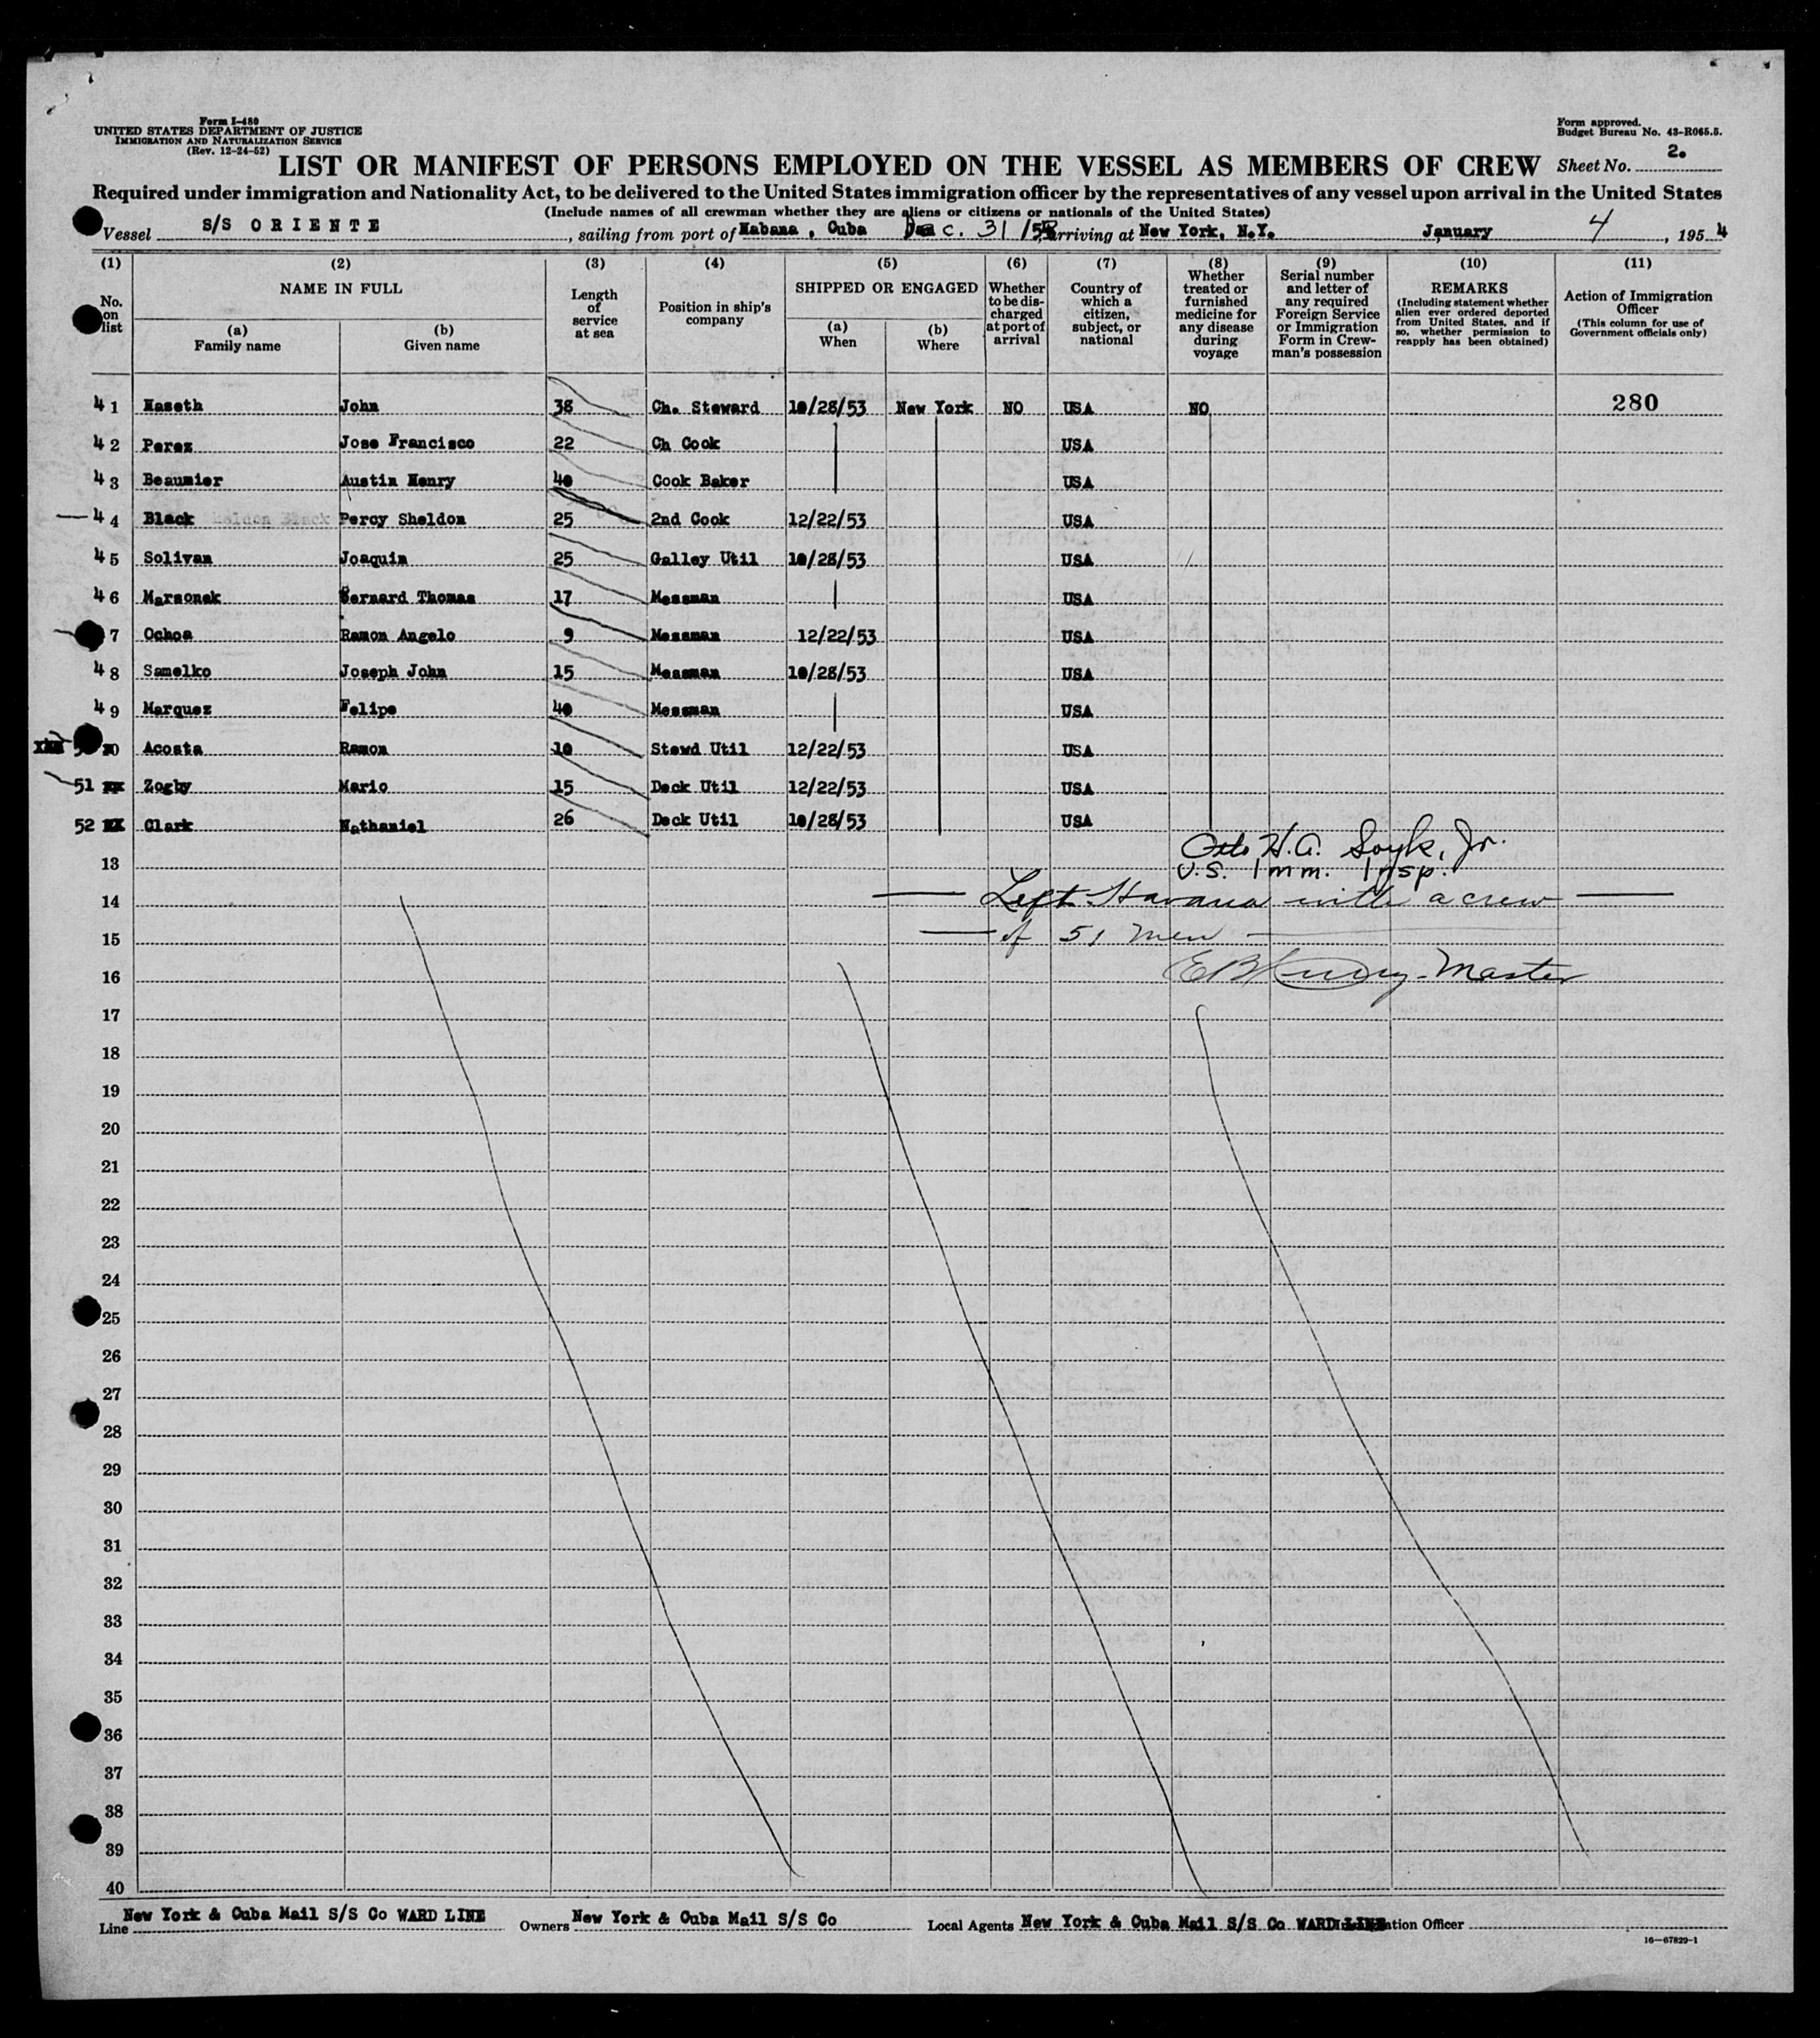 Form I-480
UNITED STATES DEPARTMENT OF JUSTICE
IMMIGRATION AND NATURALIZATION SERVICE
(Rev. 12-24-52)
Form approved.
Budget Bureau No. 43-R065.5.
LIST OR MANIFEST OF PERSONS EMPLOYED ON THE VESSEL AS MEMBERS OF CREW
Sheet No. 2.
Required under immigration and Nationality Act, to be delivered to the United States immigration officer by the representatives of any vessel upon arrival in the United States
(Include names of all crewman whether they are aliens or citizens or nationals of the United States)
Vessel S/S ORIENTE, sailing from port of Habana, Cuba Dec. 31/53 arriving at New York, N.Y. January 4, 1954
(1) (2) (3) (4) (5) (6) (7) (8) (9) (10) (11)
No. on list
NAME IN FULL
(a) Family name
(b) Given name
Length of service at sea
Position in ship's company
SHIPPED OR ENGAGED
(a) When
(b) Where
Whether to be discharged at port of arrival
Country of which a citizen, subject, or national
Whether treated or furnished medicine for any disease during voyage
Serial number and letter of any required Foreign Service or Immigration Form in Crewman's possession
REMARKS
(Including statement whether alien ever ordered deported from United States, and if so, whether permission to reapply has been obtained)
Action of Immigration Officer
(This column for use of Government officials only)
41 Haseth John 38 Ch. Steward 10/28/53 New York NO USA NO 280
42 Perez Jose Francisco 22 Ch Cook USA
43 Beaumier Austin Henry 40 Cook Baker USA
44 Black Percy Sheldon 25 2nd Cook 12/22/53 USA
45 Solivan Joaquin 25 Galley Util 10/28/53 USA
46 Marsonek Bernard Thomas 17 Messman USA
7 Ochoa Ramon Angelo 9 Messman 12/22/53 USA
48 Samelko Joseph John 15 Messman 10/28/53 USA
49 Marquez Felipe 40 Messman USA
50 Acosta Ramon 10 Stewd Util 12/22/53 USA
51 Zogby Mario 15 Deck Util 12/22/53 USA
52 Clark Nathaniel 26 Deck Util 10/28/53 USA
H.A. Soyk, Jr.
13 U.S. Imm. Insp.
14 Left Havana with a crew
15 of 51 men
16 Master
17
18
19
20
21
22
23
24
25
26
27
28
29
30
31
32
33
34
35
36
37
38
39
40
Line New York & Cuba Mail S/S Co WARD LINE Owners New York & Cuba Mail S/S Co Local Agents New York & Cuba Mail S/S Co WARD LINE Officer
16—67829-1